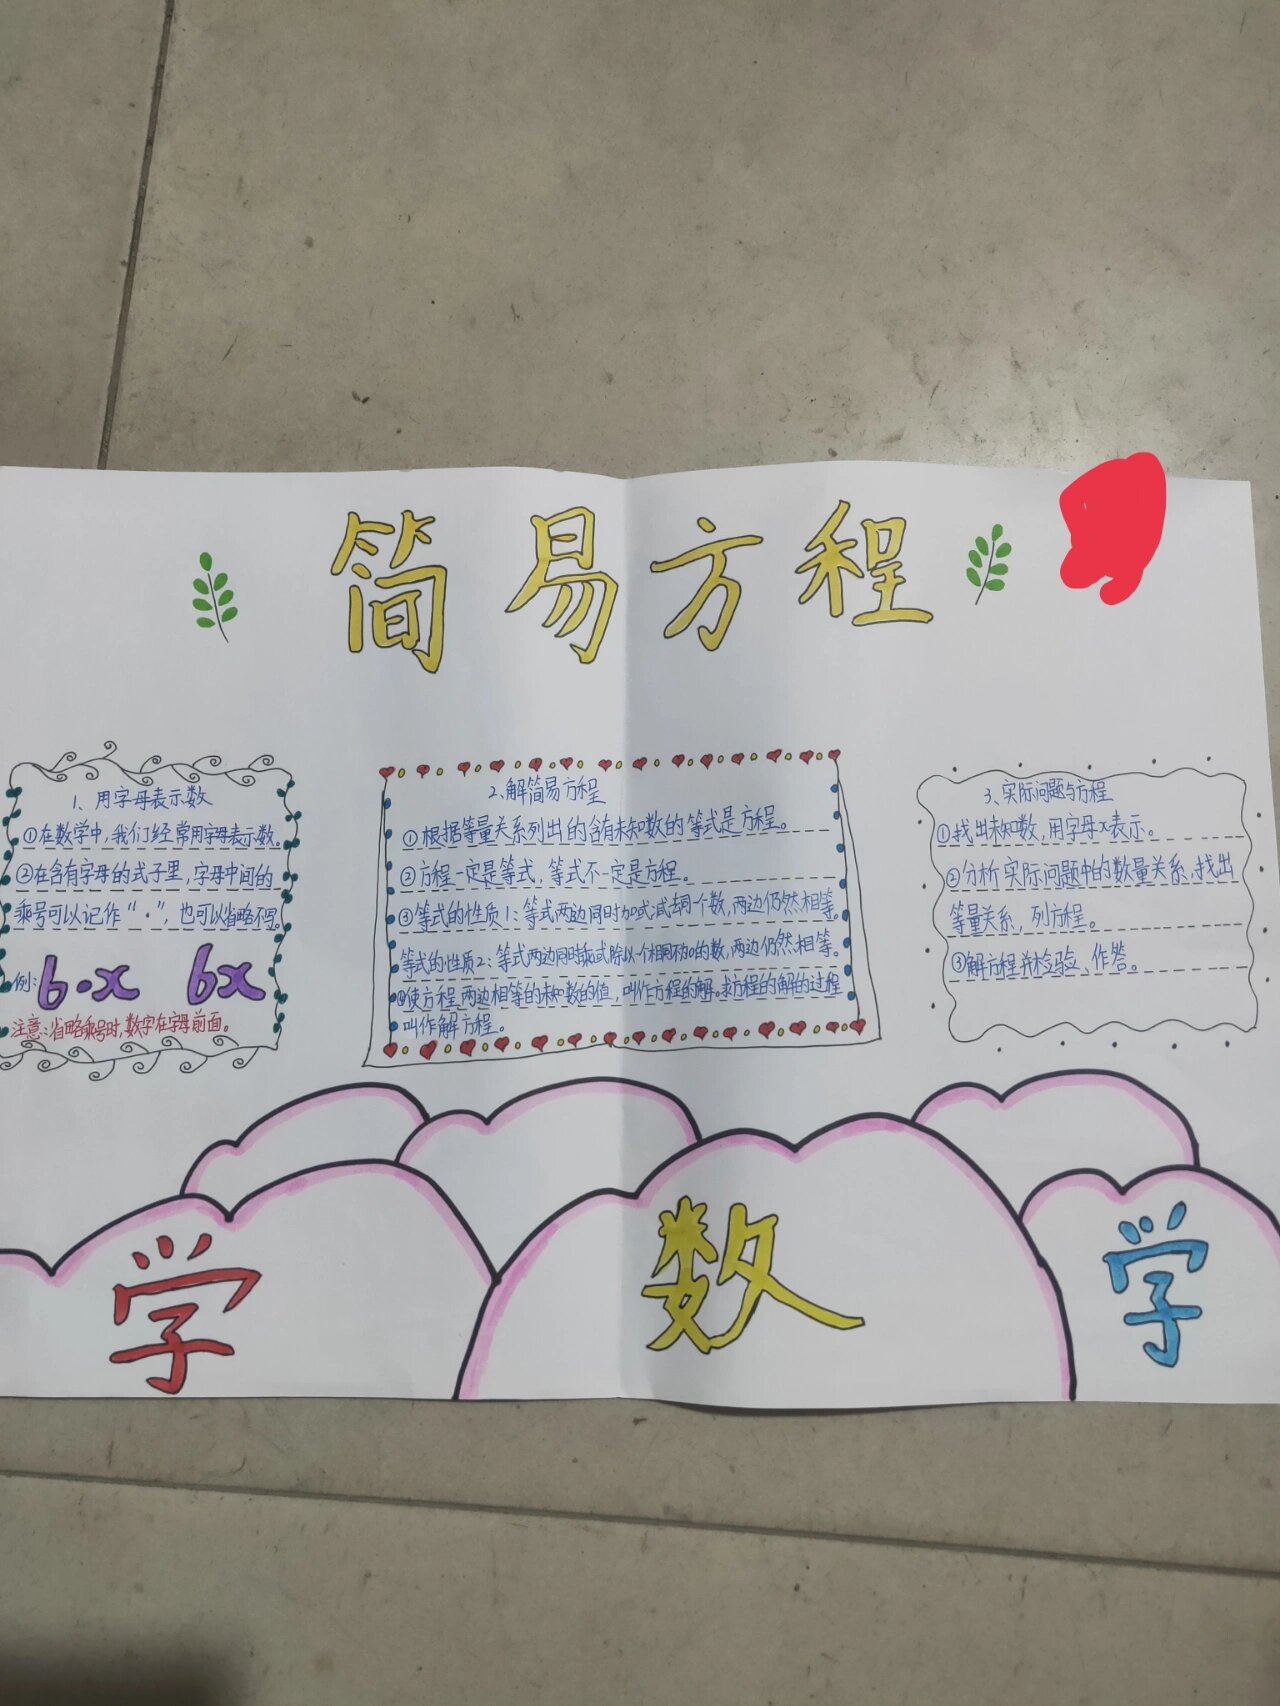 简易方程
1、用字母表示数
①在数学中,我们经常用字母表示数。
②在含有字母的式子里,字母中间的
乘号可以记作“·”,也可以省略不写。
例:6·x 6x
注意:省略乘号时,数字在字母前面。
2、解简易方程
①根据等量关系列出的含有未知数的等式是方程。
②方程一定是等式,等式不一定是方程。
③等式的性质1:等式两边同时加或减去同个数,两边仍然相等。
等式的性质2:等式两边同时乘或除以一个相同不为0的数,两边仍然相等。
④使方程两边相等的未知数的值,叫作方程的解。求方程的解的过程
叫作解方程。
3、实际问题与方程
①找出未知数,用字母x表示。
②分析实际问题中的数量关系,找出
等量关系,列方程。
③解方程并检验,作答。
学 数 学